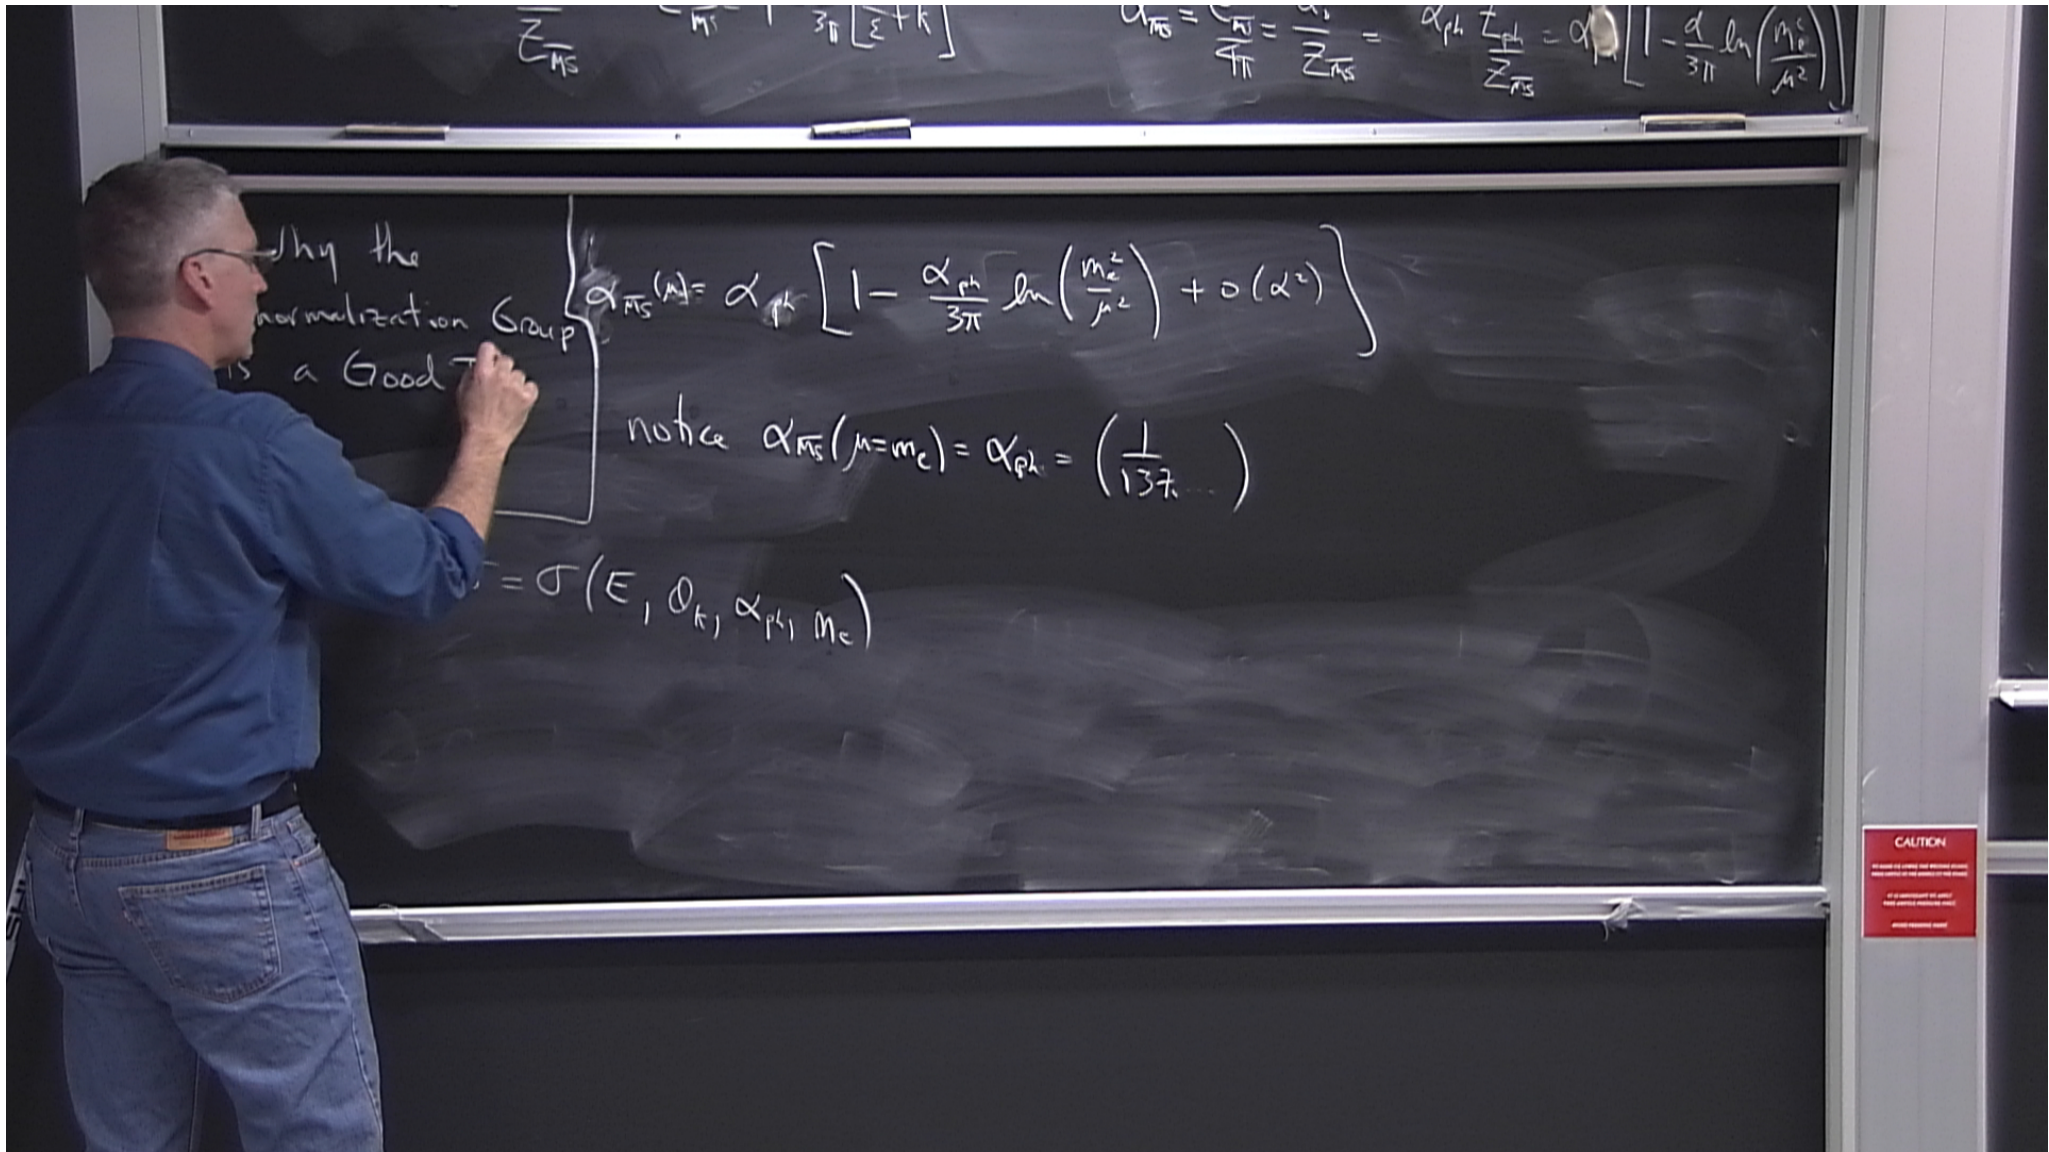 Z_M̅S̅
3π [ 1/ε + k ]
α_M̅S̅ = e_M̅S̅ / 4π = α₀ / Z_M̅S̅ = α_ph Z_ph / Z_M̅S̅ = α [ 1 - α/3π ln( m_e²/μ² ) ]
Why the
normalization Group
is a Good T
α_M̅S̅(μ) = α_ph [ 1 - α_ph/3π ln( m_e²/μ² ) + O(α²) ]
notice α_M̅S̅(μ=m_e) = α_ph = ( 1/137. ... )
= σ( E, θ_k, α_ph, m_e )
CAUTION